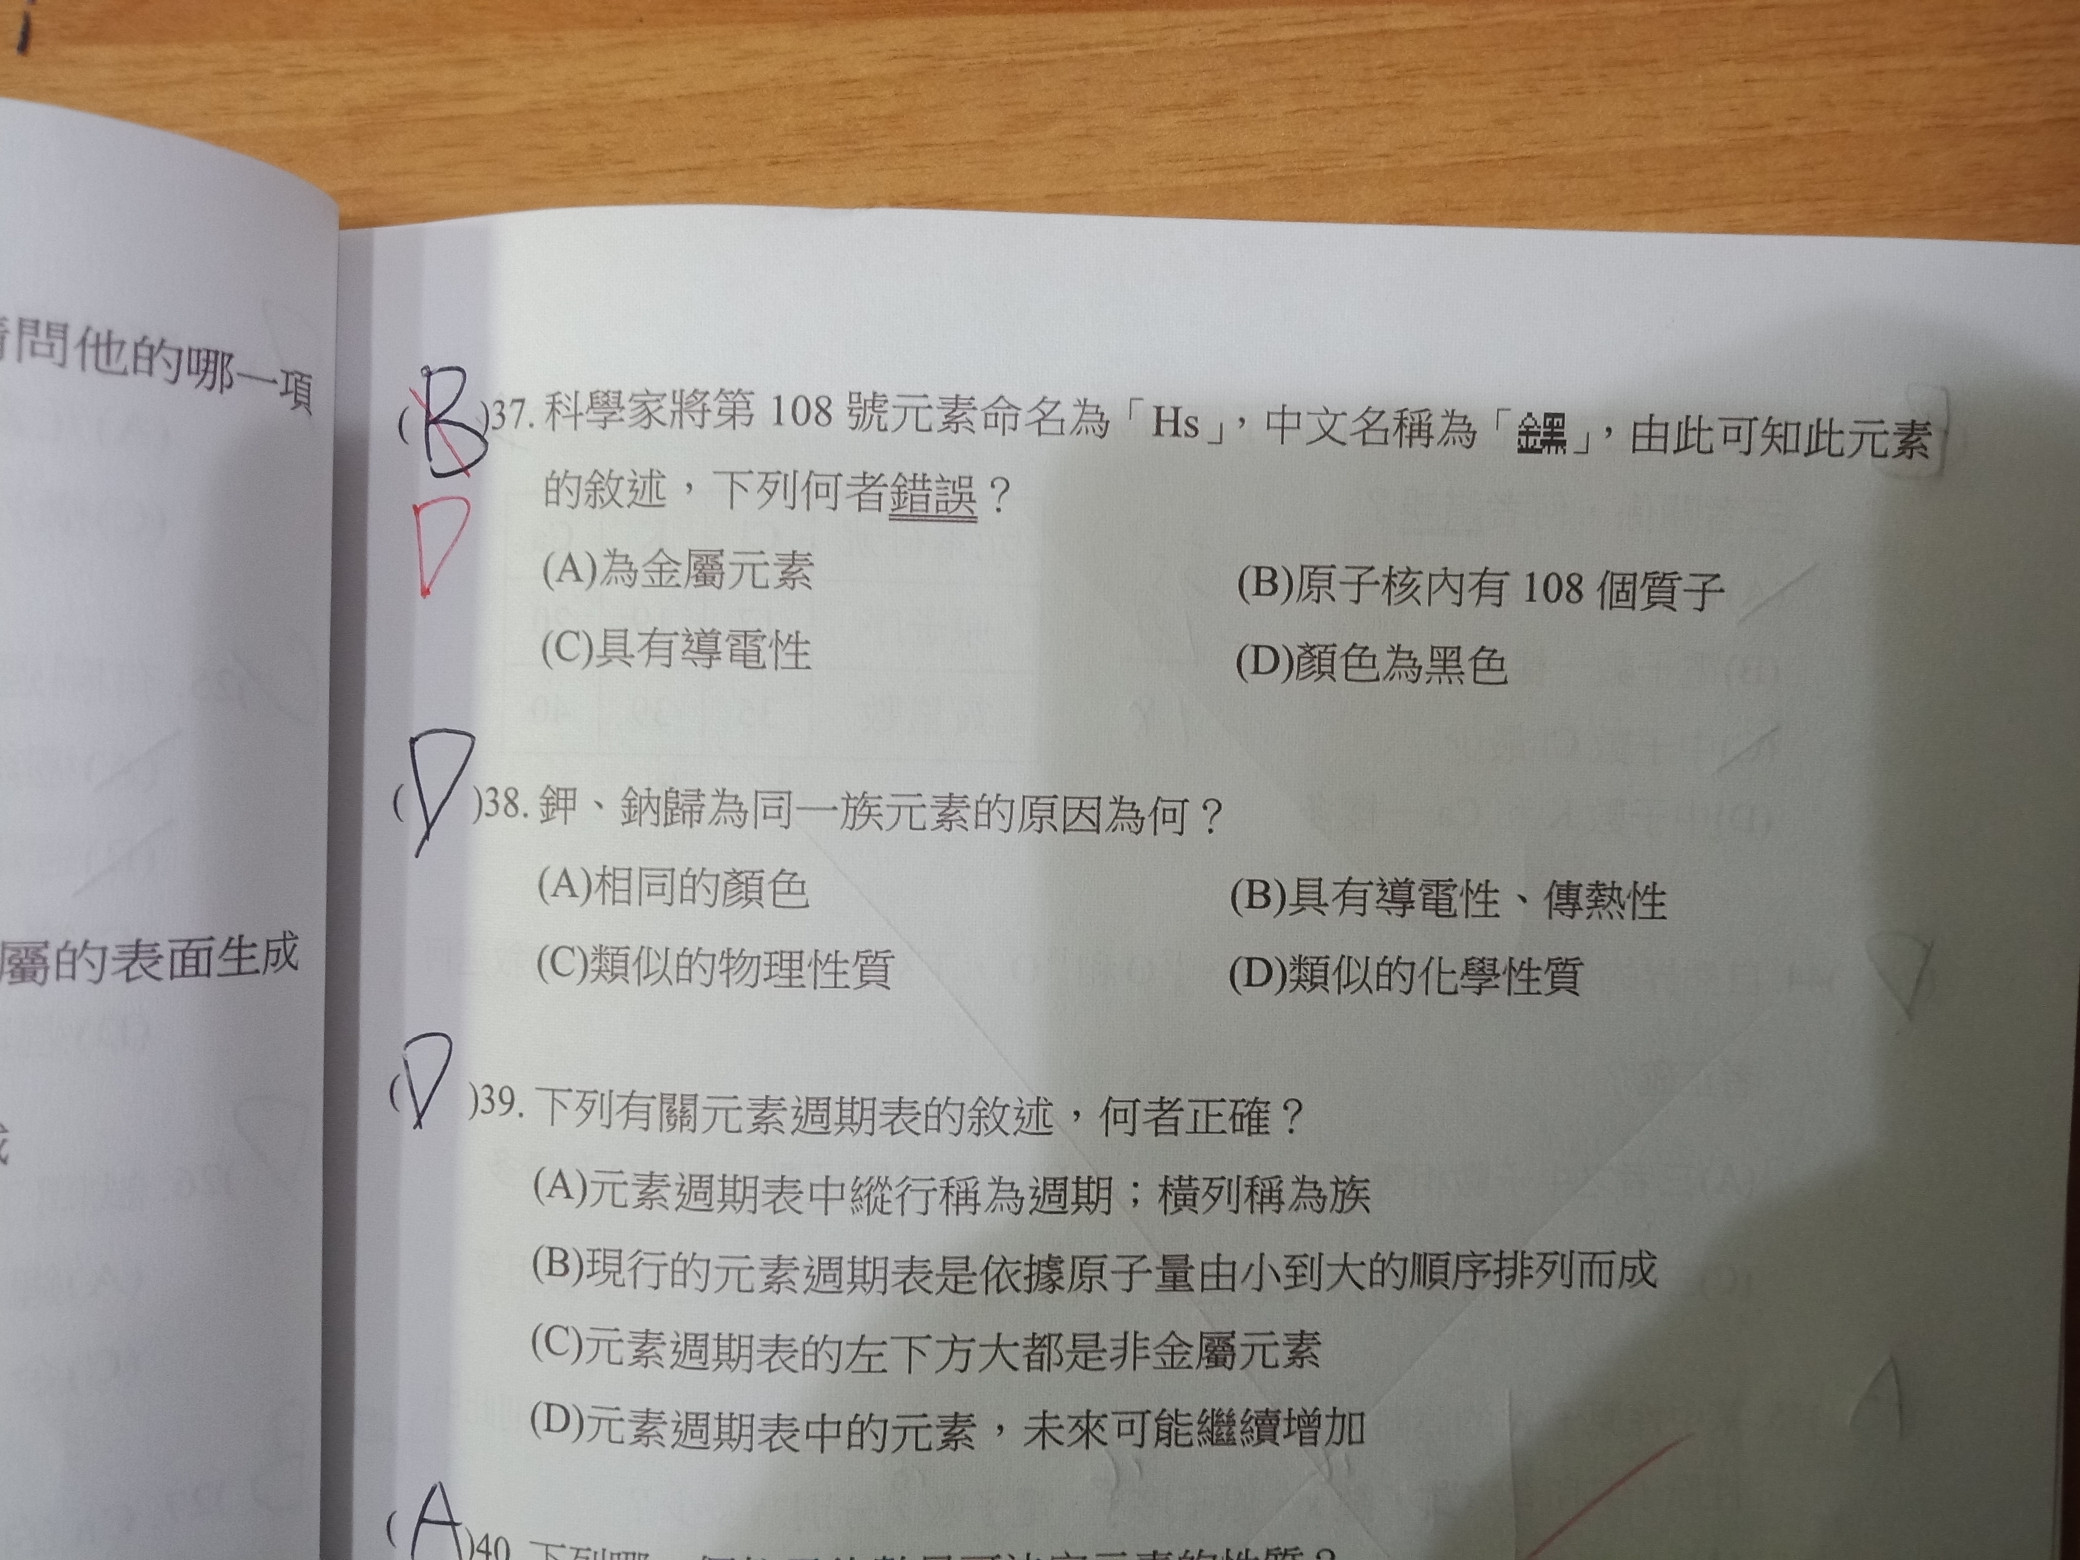 請問他的哪一項
屬的表面生成
(B)37. 科學家將第 108 號元素命名為「Hs」，中文名稱為「𨭆」，由此可知此元素
D
的敘述，下列何者錯誤？
(A)為金屬元素 (B)原子核內有 108 個質子
(C)具有導電性 (D)顏色為黑色
(D)38. 鉀、鈉歸為同一族元素的原因為何？
(A)相同的顏色 (B)具有導電性、傳熱性
(C)類似的物理性質 (D)類似的化學性質
(D)39. 下列有關元素週期表的敘述，何者正確？
(A)元素週期表中縱行稱為週期；橫列稱為族
(B)現行的元素週期表是依據原子量由小到大的順序排列而成
(C)元素週期表的左下方大都是非金屬元素
(D)元素週期表中的元素，未來可能繼續增加
(A)40. 下列哪